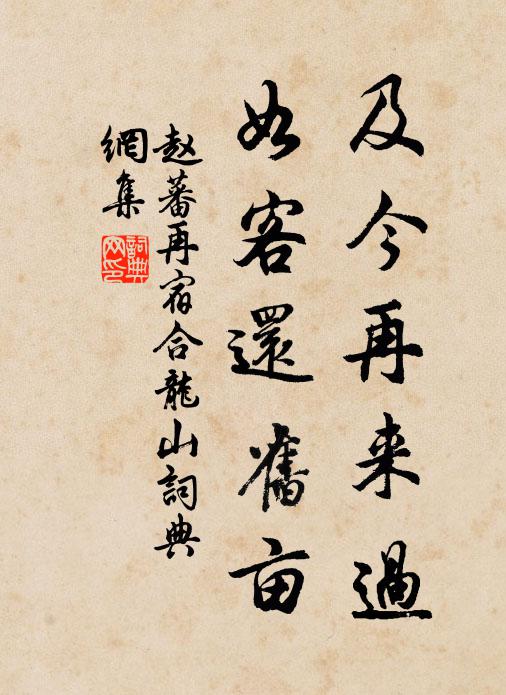 及今再来過
如客還舊亩
赵蕃再宿合龍山詞典
網集
詞典
网印